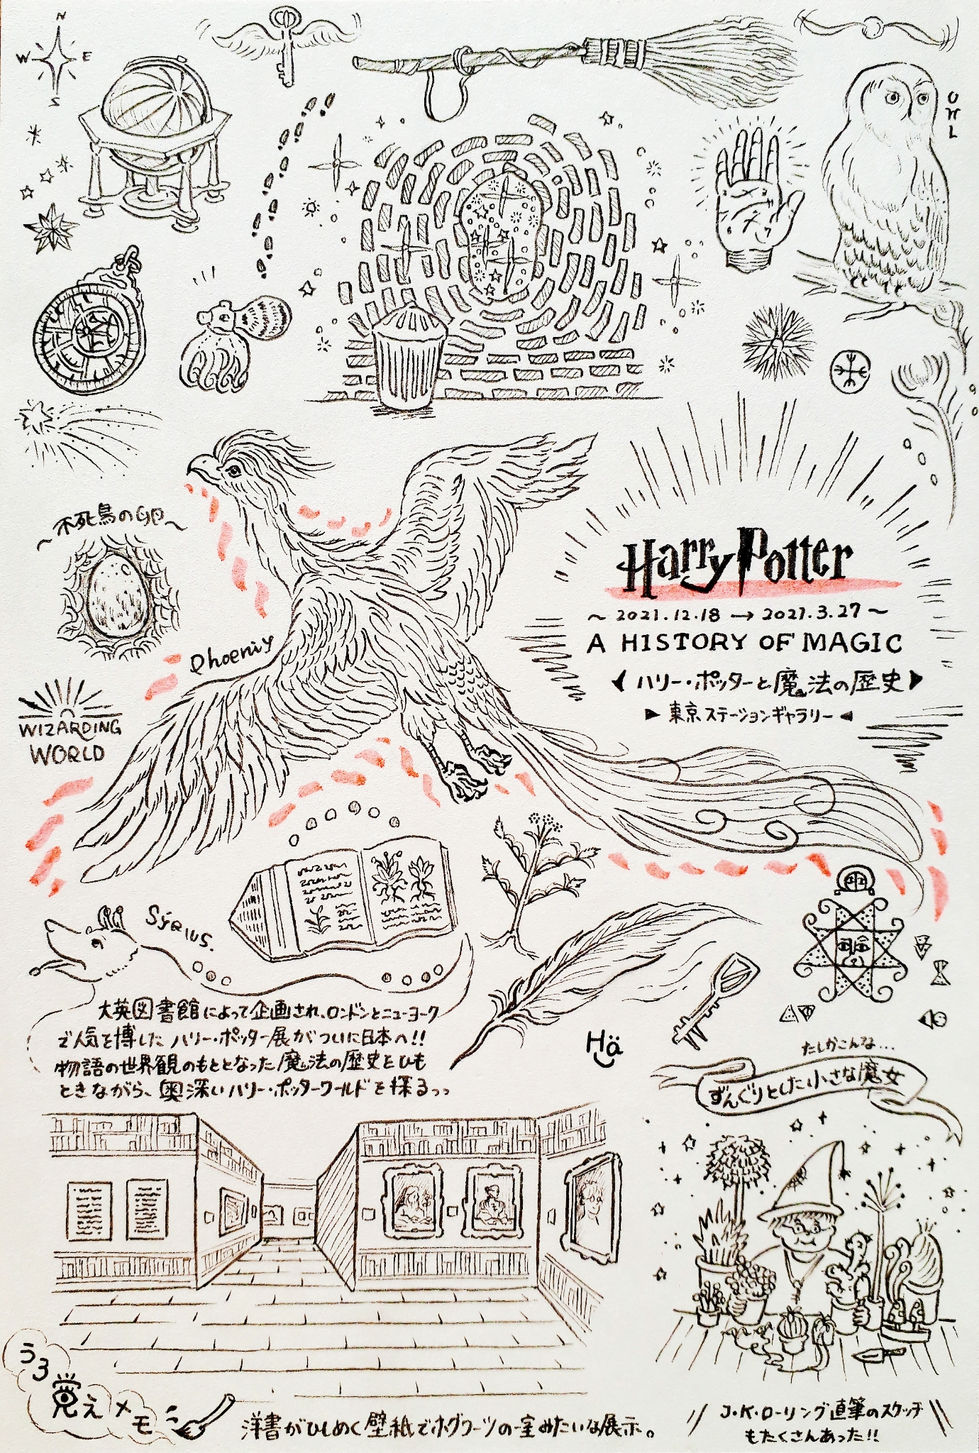 N
W E
S
OWL
不死鳥の卵
Phoenix
WIZARDING
WORLD
Harry Potter
～2021.12.18→2021.3.27～
A HISTORY OF MAGIC
ハリー・ポッターと魔法の歴史
▶東京ステーションギャラリー◀
Syrius.
大英図書館によって企画され、ロンドンとニューヨーク
で人気を博した ハリー・ポッター展がついに日本へ!!
物語の世界観のもととなった魔法の歴史とひも
ときながら、奥深いハリー・ポッターワールドを探るっっ
Hä
たしかこんな…
ずんぐりとした小さな魔女
うろ
覚えメモ
洋書がひしめく壁紙でホグワーツの一室みたいな展示。
J・K・ローリング直筆のスケッチ
もたくさんあった!!